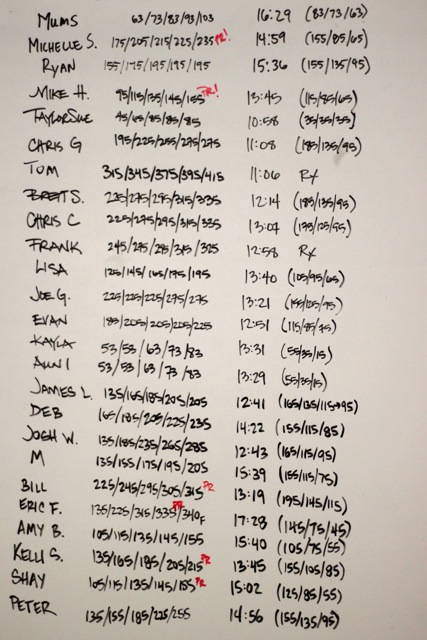 MUMS 63/73/83/93/103 16:29 (83/73/63)
MICHELLE S. 175/205/215/225/235 PR! 14:59 (155/85/65)
RYAN 155/175/195/195/195 15:36 (155/135/95)
MIKE H. 95/115/135/145/155 PR! 13:45 (115/85/65)
TAYLOR SUE 45/65/85/85/85 10:58 (35/35/35)
CHRIS G 195/225/255/275/275 11:08 (185/135/95)
TOM 315/345/375/395/415 11:06 RX
BRETT S. 225/275/295/315/335 12:14 (185/135/95)
CHRIS C 225/275/295/315/335 13:07 (175/125/95)
FRANK 245/275/295/315/325 12:58 RX
LISA 125/145/165/175/195 13:40 (105/95/65)
JOE G. 225/225/225/275/275 13:21 (155/125/95)
EVAN 185/205/205/205/225 12:51 (115/95/75)
KAYLA 53/53/63/73/83 13:31 (55/35/15)
53/53/63/73/83 13:29 (55/35/15)
JAMES L. 135/165/185/205/205 12:41 (165/135/115→95)
DEB 165/185/205/225/235 14:22 (155/115/85)
JOSH W. 135/185/235/265/285 12:43 (165/115/95)
M 135/155/175/195/205 15:39 (155/115/75)
BILL 225/245/295/305/315 PR 13:19 (195/145/115)
ERIC F. 135/225/315/335 PR/340F 17:28 (145/75/45)
AMY B. 105/115/135/145/155 15:40 (105/75/55)
KELLI S. 135/165/185/205/215 PR 13:45 (155/105/85)
SHAY 105/115/135/145/155 PR 15:02 (125/85/55)
PETER 135/155/185/225/255 14:56 (155/135/95)